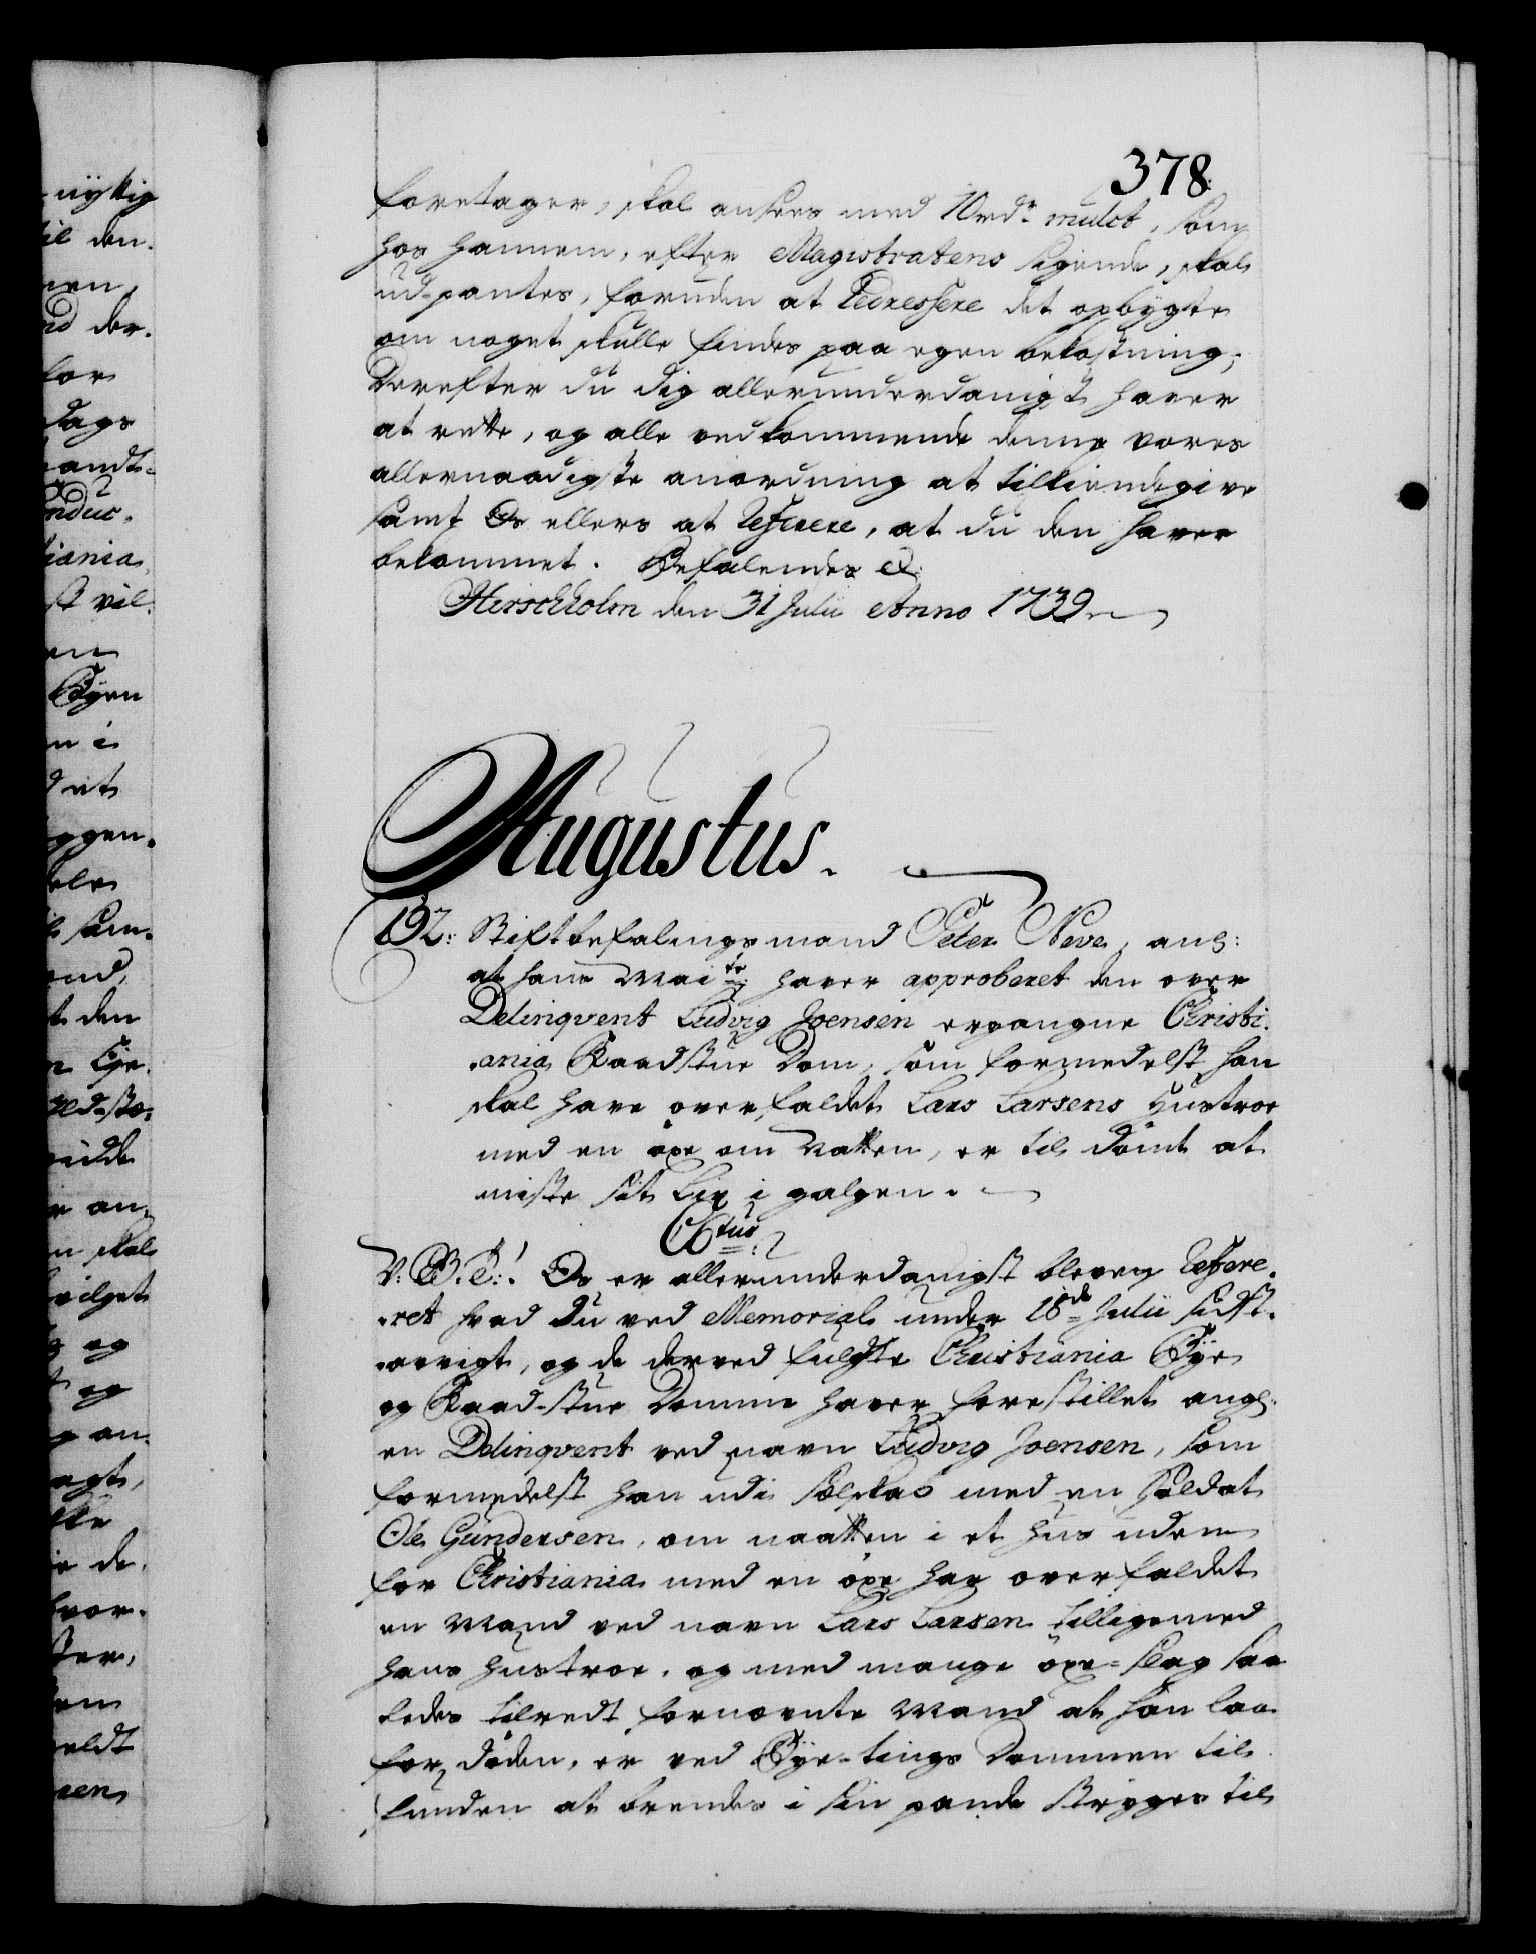 378.
foretager, skal ansees med 10 rdr. mulct, som
hos hannem, efter Magistratens sigende, skal
ud-pantes, foruden at redressere det opbygte
om noget skulle findes paa egen bekostning;
Derefter du dig allerunderdanigst haver
at rette, og alle vedkommende denne vores
allernaadigste anordning at tilkiendegive
samt Os ellers at referere, at du den haver
bekommet. Befalendes &.
Hirschholm den 31 Julii Anno 1739

Augustus.
192: Stiftbefalingsmand Peter Neve, ang:
at hans Maitr. haver approberet den over
Delinqvent Ludvig Joensen ergangne Christi-
ania Raadstue Dom, som formedelst han
skal have overfaldet Lars Larsens Hustroe
med en öxe om Natten, er til dömt at
miste sit Liv i galgen.
C6tus
V: G. T:. Os er allerunderdanigst bleven refere-
ret hvad du ved Memorial under 18de Julii sidst-
afvigt, og de derved fulgte Christiania Bye
og Raad-stue Domme haver forestillet angl:
en Delinqvent ved navn Ludvig Joensen, som
formedelst han udi Selskab med en Soldat
Ole Gundersen, om natten i et huus uden
for Christiania med en öxe har overfaldet
en Mand ved navn Lars Larsen tilligemed
hans hustroe, og med mange öxe-slag saa-
ledes tilredt fornevnte Mand at han laae
for döden, er ved Bye-tings Dommen til-
funden at brendes i sin pande stryges til